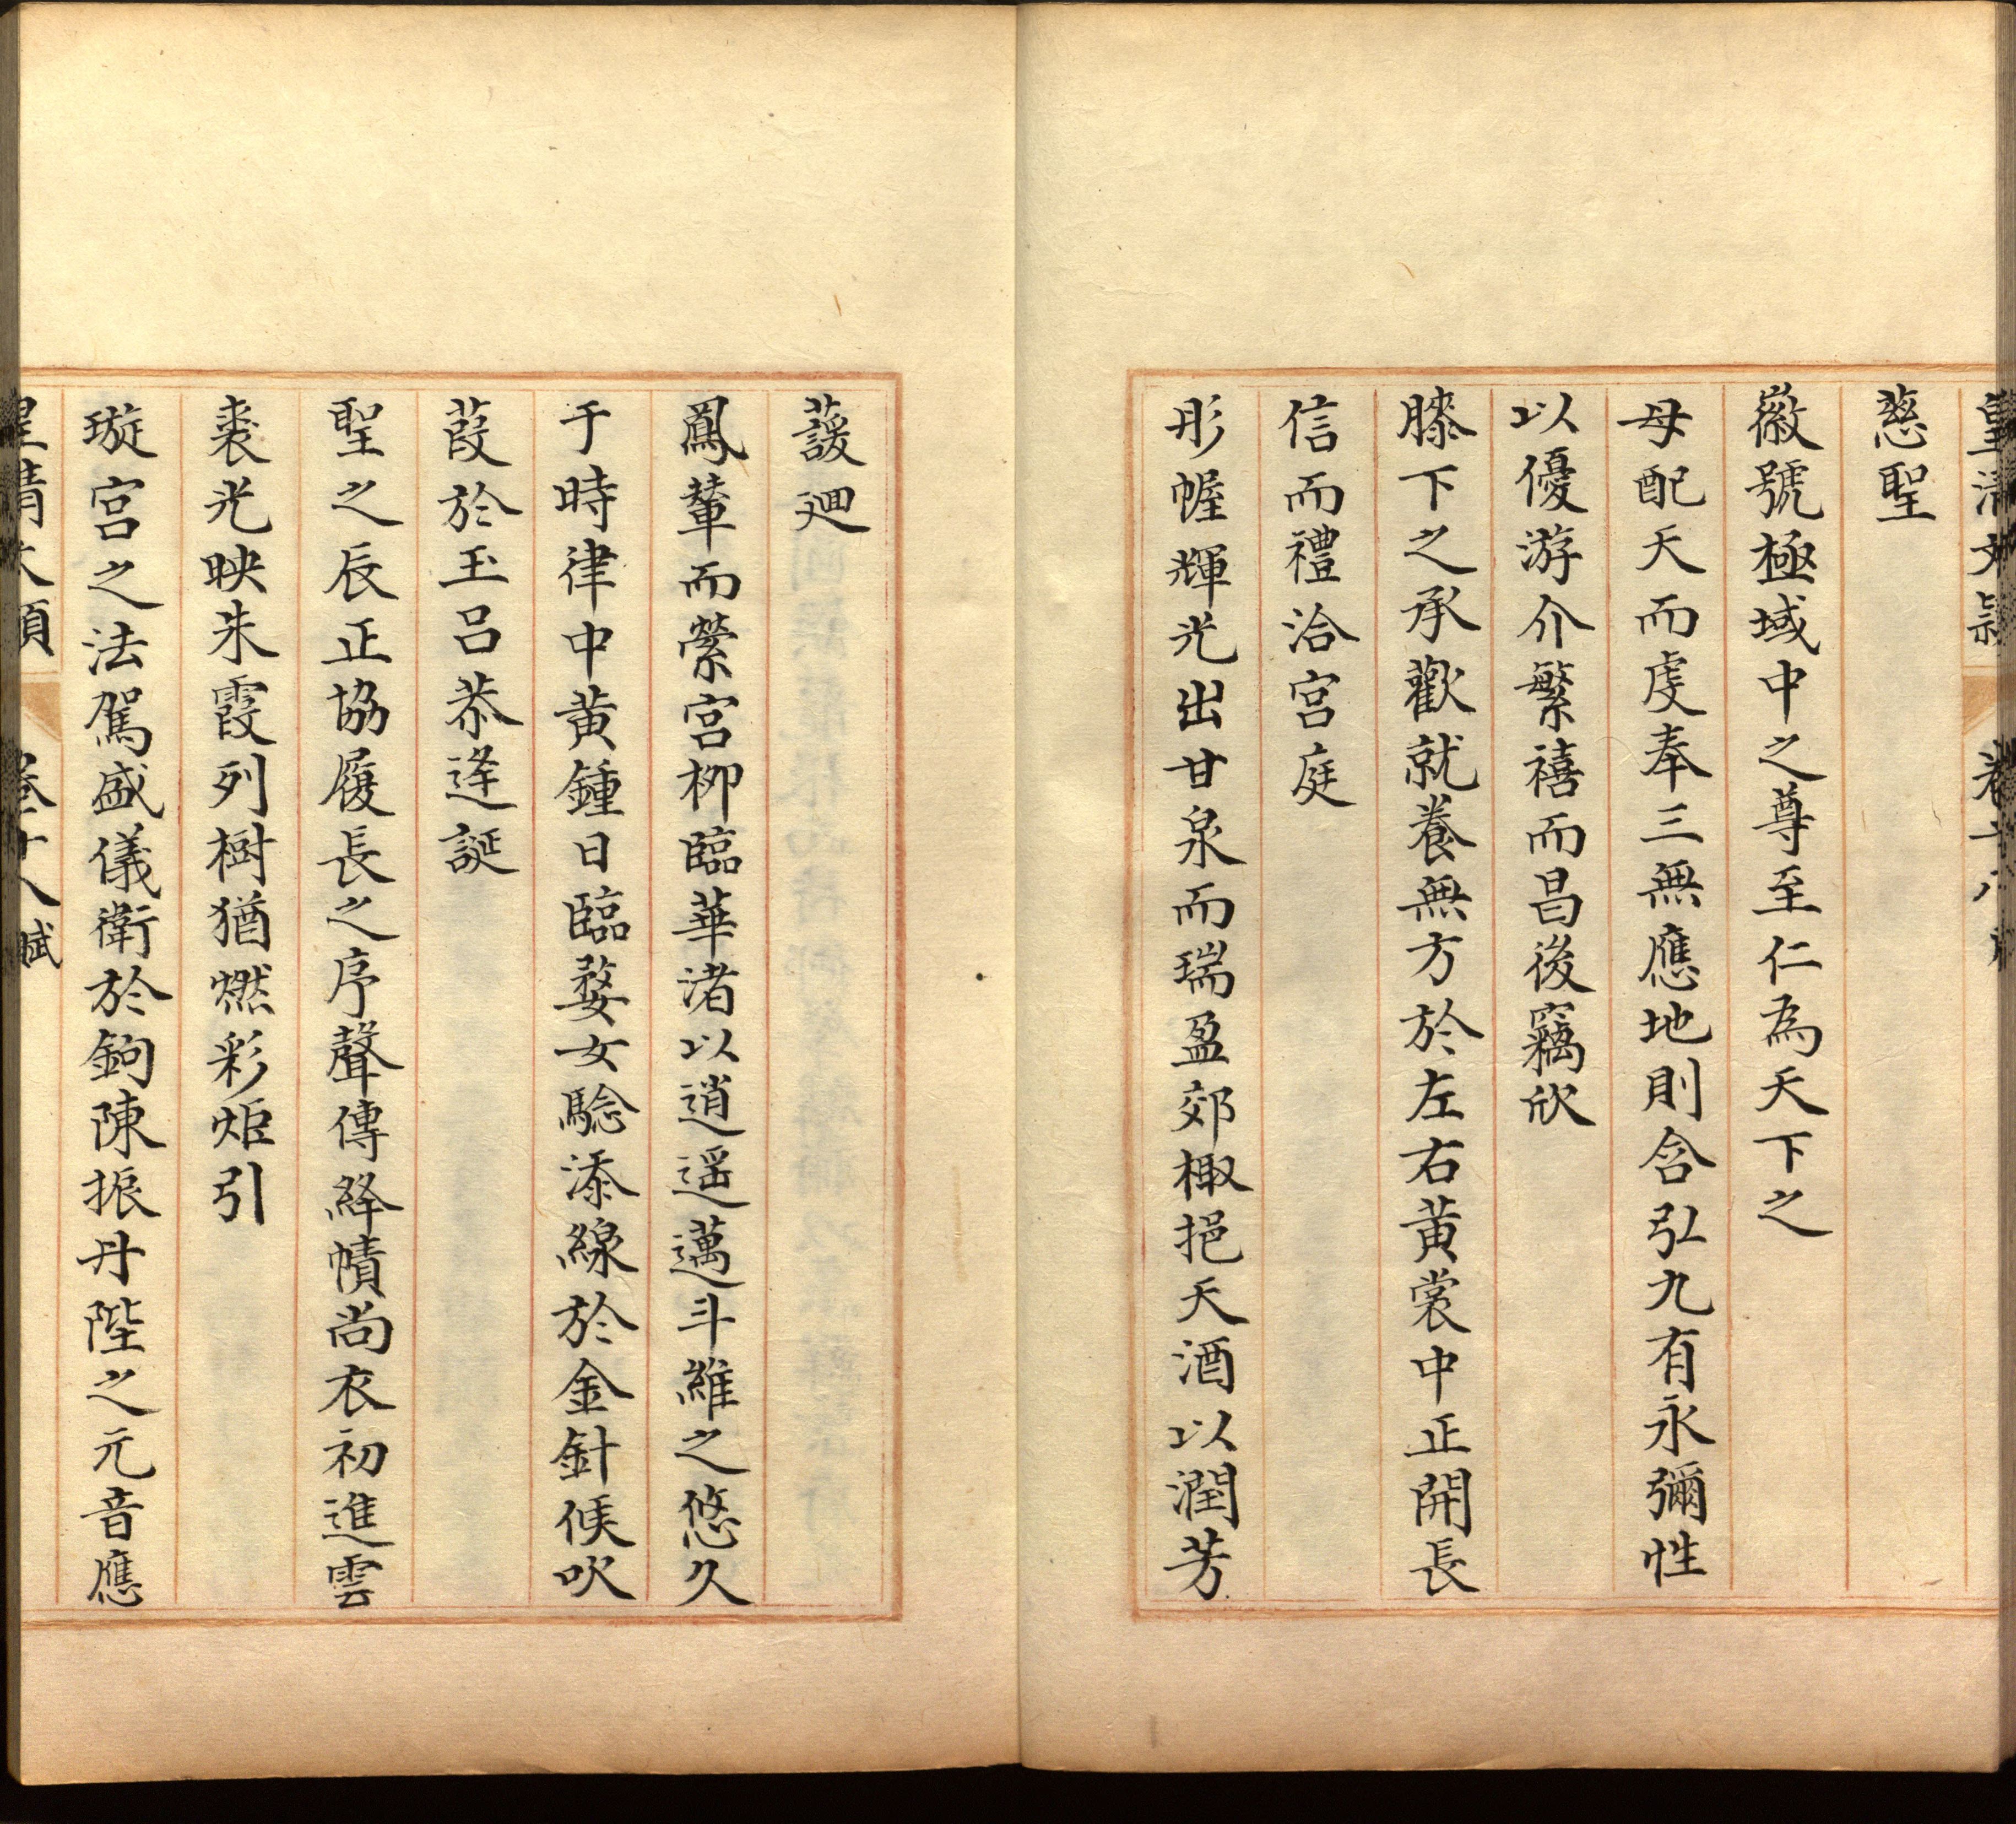 皇清文穎 卷十八 賦
慈聖
徽號極域中之尊至仁為天下之
母配天而虔奉三無應地則含弘九有永彌性
以優游介繁禧而昌後竊欣
膝下之承歡就養無方於左右黃裳中正開長
信而禮洽宮庭
彤幄輝光出甘泉而瑞盈郊棷挹天酒以潤芳
蕿廻
鳳輦而縈宮柳臨華渚以逍遥邁斗維之悠久
于時律中黃鍾日臨婺女騐添線於金針候吹
葭於玉呂恭逢誕
聖之辰正協履長之序聲傳絳幘尚衣初進雲
裘光映朱霞列樹猶燃彩炬引
璇宮之法駕盛儀衛於鉤陳振丹陛之元音應
皇清文穎 卷十八 賦